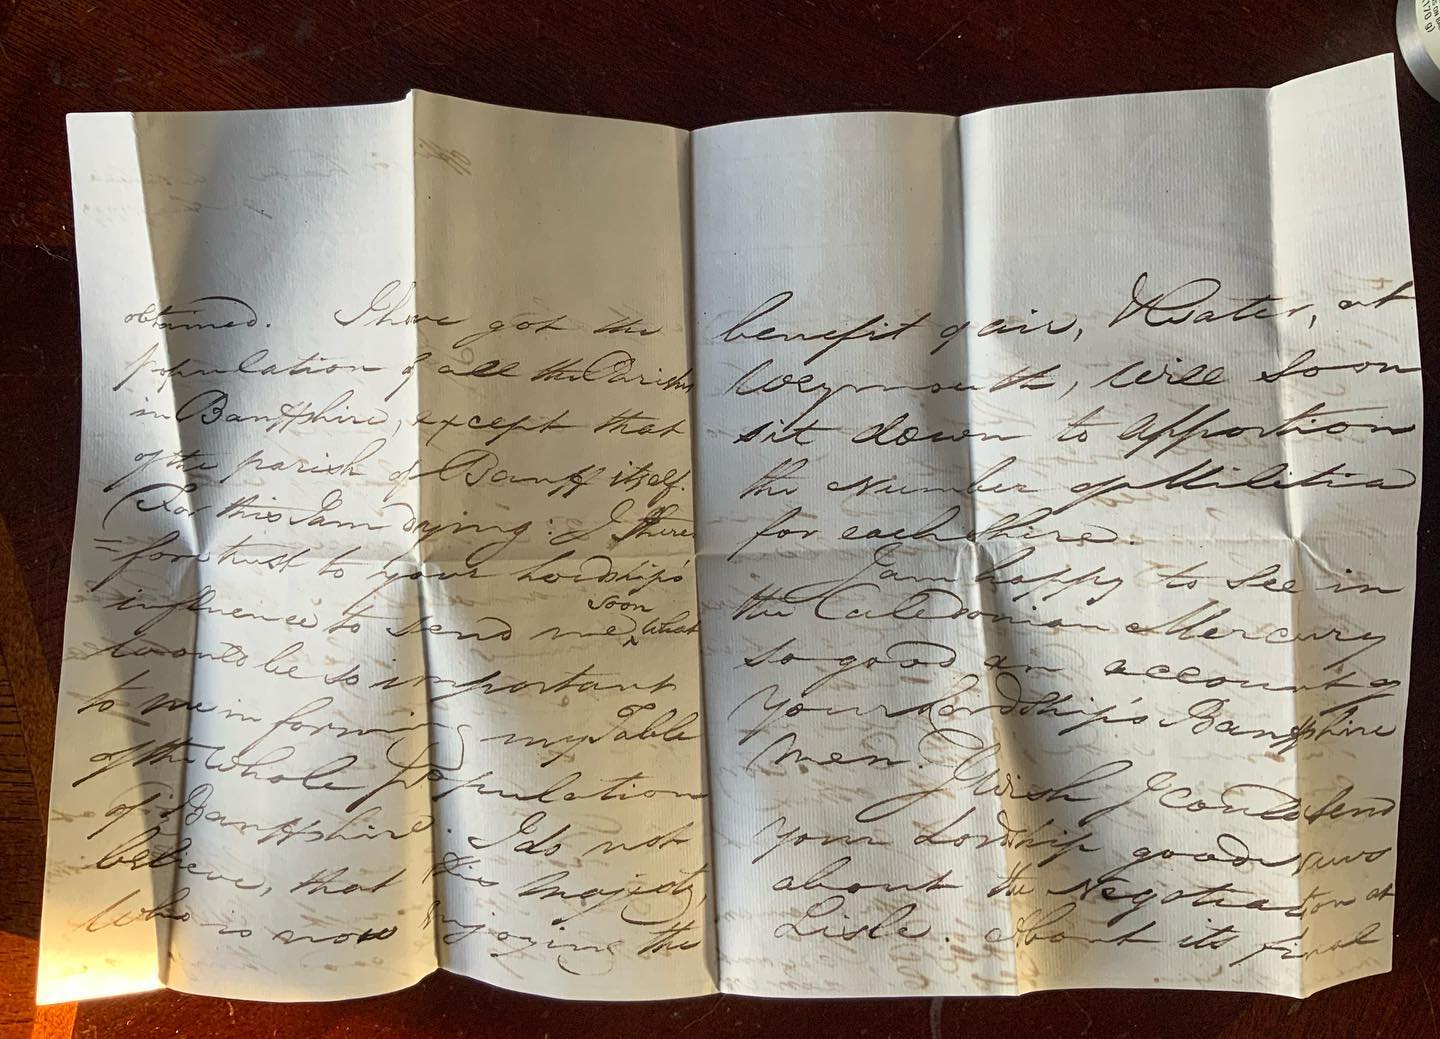 obtained. I have got the
population of all the Parishes
in Banffshire, except that
of the parish of Banff itself.
For this I am trying: I there
= fore trust to your Lordship's
influence to send me soon what
would be so important
to me in forming my Table
of the whole Population
of Banffshire. I do not
believe, that His Majesty,
who is now enjoying the
benefit of air, & Water, at
Weymouth, will soon
sit down to apportion
the Number of Militia
for each shire.
I am happy to see in
the Caledonian Mercury
so good an account of
your Lordship's Banffshire
men. I wish I could send
your Lordship good news
about the Negotiation at
Lisle. About its final